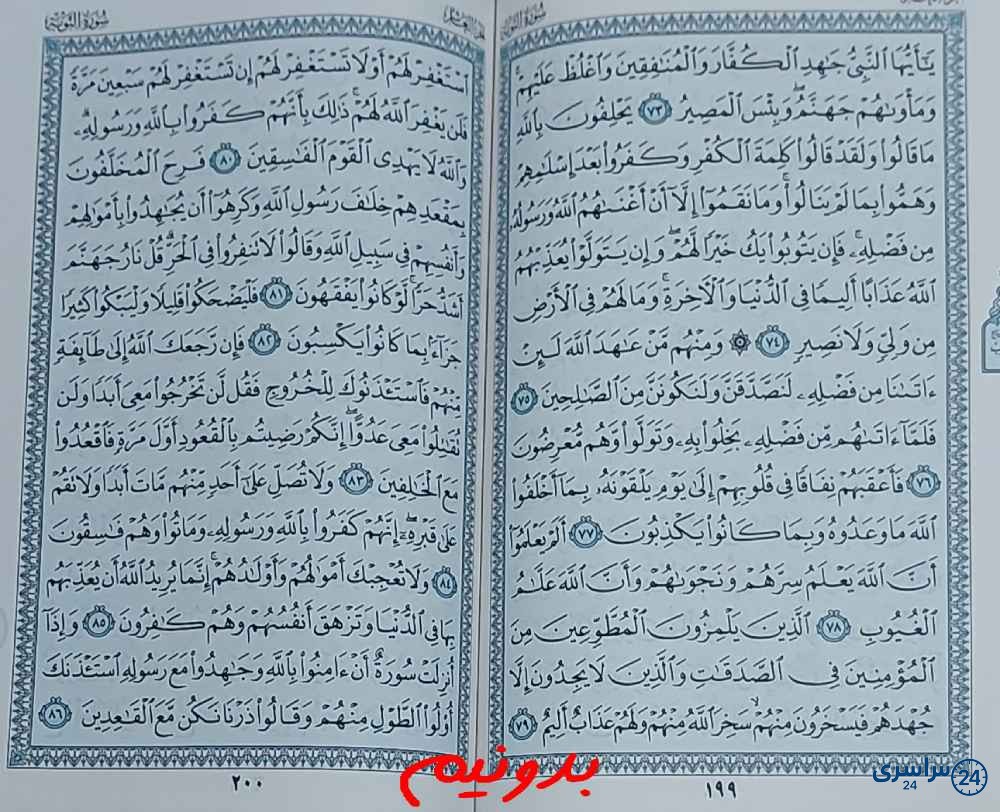 سُورَةُ التَّوْبَةِ
يَٰٓأَيُّهَا ٱلنَّبِيُّ جَٰهِدِ ٱلْكُفَّارَ وَٱلْمُنَٰفِقِينَ وَٱغْلُظْ عَلَيْهِمْ ۚ
وَمَأْوَىٰهُمْ جَهَنَّمُ ۖ وَبِئْسَ ٱلْمَصِيرُ ٧٣ يَحْلِفُونَ بِٱللَّهِ
مَا قَالُوا۟ وَلَقَدْ قَالُوا۟ كَلِمَةَ ٱلْكُفْرِ وَكَفَرُوا۟ بَعْدَ إِسْلَٰمِهِمْ
وَهَمُّوا۟ بِمَا لَمْ يَنَالُوا۟ ۚ وَمَا نَقَمُوٓا۟ إِلَّآ أَنْ أَغْنَىٰهُمُ ٱللَّهُ وَرَسُولُهُۥ
مِن فَضْلِهِۦ ۚ فَإِن يَتُوبُوا۟ يَكُ خَيْرًا لَّهُمْ ۖ وَإِن يَتَوَلَّوْا۟ يُعَذِّبْهُمُ
ٱللَّهُ عَذَابًا أَلِيمًا فِى ٱلدُّنْيَا وَٱلْءَاخِرَةِ ۚ وَمَا لَهُمْ فِى ٱلْأَرْضِ
مِن وَلِىٍّ وَلَا نَصِيرٍ ٧٤ ۞ وَمِنْهُم مَّنْ عَٰهَدَ ٱللَّهَ لَئِنْ
ءَاتَىٰنَا مِن فَضْلِهِۦ لَنَصَّدَّقَنَّ وَلَنَكُونَنَّ مِنَ ٱلصَّٰلِحِينَ ٧٥
فَلَمَّآ ءَاتَىٰهُم مِّن فَضْلِهِۦ بَخِلُوا۟ بِهِۦ وَتَوَلَّوا۟ وَّهُم مُّعْرِضُونَ
٧٦ فَأَعْقَبَهُمْ نِفَاقًا فِى قُلُوبِهِمْ إِلَىٰ يَوْمِ يَلْقَوْنَهُۥ بِمَآ أَخْلَفُوا۟
ٱللَّهَ مَا وَعَدُوهُ وَبِمَا كَانُوا۟ يَكْذِبُونَ ٧٧ أَلَمْ يَعْلَمُوٓا۟
أَنَّ ٱللَّهَ يَعْلَمُ سِرَّهُمْ وَنَجْوَىٰهُمْ وَأَنَّ ٱللَّهَ عَلَّٰمُ
ٱلْغُيُوبِ ٧٨ ٱلَّذِينَ يَلْمِزُونَ ٱلْمُطَّوِّعِينَ مِنَ
ٱلْمُؤْمِنِينَ فِى ٱلصَّدَقَٰتِ وَٱلَّذِينَ لَا يَجِدُونَ إِلَّا
جُهْدَهُمْ فَيَسْخَرُونَ مِنْهُمْ ۙ سَخِرَ ٱللَّهُ مِنْهُمْ وَلَهُمْ عَذَابٌ أَلِيمٌ ٧٩
١٩٩
سُورَةُ التَّوْبَةِ
ٱسْتَغْفِرْ لَهُمْ أَوْ لَا تَسْتَغْفِرْ لَهُمْ إِن تَسْتَغْفِرْ لَهُمْ سَبْعِينَ مَرَّةً
فَلَن يَغْفِرَ ٱللَّهُ لَهُمْ ۚ ذَٰلِكَ بِأَنَّهُمْ كَفَرُوا۟ بِٱللَّهِ وَرَسُولِهِۦ ۗ
وَٱللَّهُ لَا يَهْدِى ٱلْقَوْمَ ٱلْفَٰسِقِينَ ٨٠ فَرِحَ ٱلْمُخَلَّفُونَ
بِمَقْعَدِهِمْ خِلَٰفَ رَسُولِ ٱللَّهِ وَكَرِهُوٓا۟ أَن يُجَٰهِدُوا۟ بِأَمْوَٰلِهِمْ
وَأَنفُسِهِمْ فِى سَبِيلِ ٱللَّهِ وَقَالُوا۟ لَا تَنفِرُوا۟ فِى ٱلْحَرِّ ۗ قُلْ نَارُ جَهَنَّمَ
أَشَدُّ حَرًّا ۚ لَّوْ كَانُوا۟ يَفْقَهُونَ ٨١ فَلْيَضْحَكُوا۟ قَلِيلًا وَلْيَبْكُوا۟ كَثِيرًا
جَزَآءًۢ بِمَا كَانُوا۟ يَكْسِبُونَ ٨٢ فَإِن رَّجَعَكَ ٱللَّهُ إِلَىٰ طَآئِفَةٍ
مِّنْهُمْ فَٱسْتَـْٔذَنُوكَ لِلْخُرُوجِ فَقُل لَّن تَخْرُجُوا۟ مَعِىَ أَبَدًا وَلَن
تُقَٰتِلُوا۟ مَعِىَ عَدُوًّا ۖ إِنَّكُمْ رَضِيتُم بِٱلْقُعُودِ أَوَّلَ مَرَّةٍ فَٱقْعُدُوا۟
مَعَ ٱلْخَٰلِفِينَ ٨٣ وَلَا تُصَلِّ عَلَىٰٓ أَحَدٍ مِّنْهُم مَّاتَ أَبَدًا وَلَا تَقُمْ
عَلَىٰ قَبْرِهِۦٓ ۖ إِنَّهُمْ كَفَرُوا۟ بِٱللَّهِ وَرَسُولِهِۦ وَمَاتُوا۟ وَهُمْ فَٰسِقُونَ
٨٤ وَلَا تُعْجِبْكَ أَمْوَٰلُهُمْ وَأَوْلَٰدُهُمْ ۚ إِنَّمَا يُرِيدُ ٱللَّهُ أَن يُعَذِّبَهُم
بِهَا فِى ٱلدُّنْيَا وَتَزْهَقَ أَنفُسُهُمْ وَهُمْ كَٰفِرُونَ ٨٥ وَإِذَآ
أُنزِلَتْ سُورَةٌ أَنْ ءَامِنُوا۟ بِٱللَّهِ وَجَٰهِدُوا۟ مَعَ رَسُولِهِ ٱسْتَـْٔذَنَكَ
أُو۟لُوا۟ ٱلطَّوْلِ مِنْهُمْ وَقَالُوا۟ ذَرْنَا نَكُن مَّعَ ٱلْقَٰعِدِينَ ٨٦
٢٠٠
بدونیم
سراسری 24
24